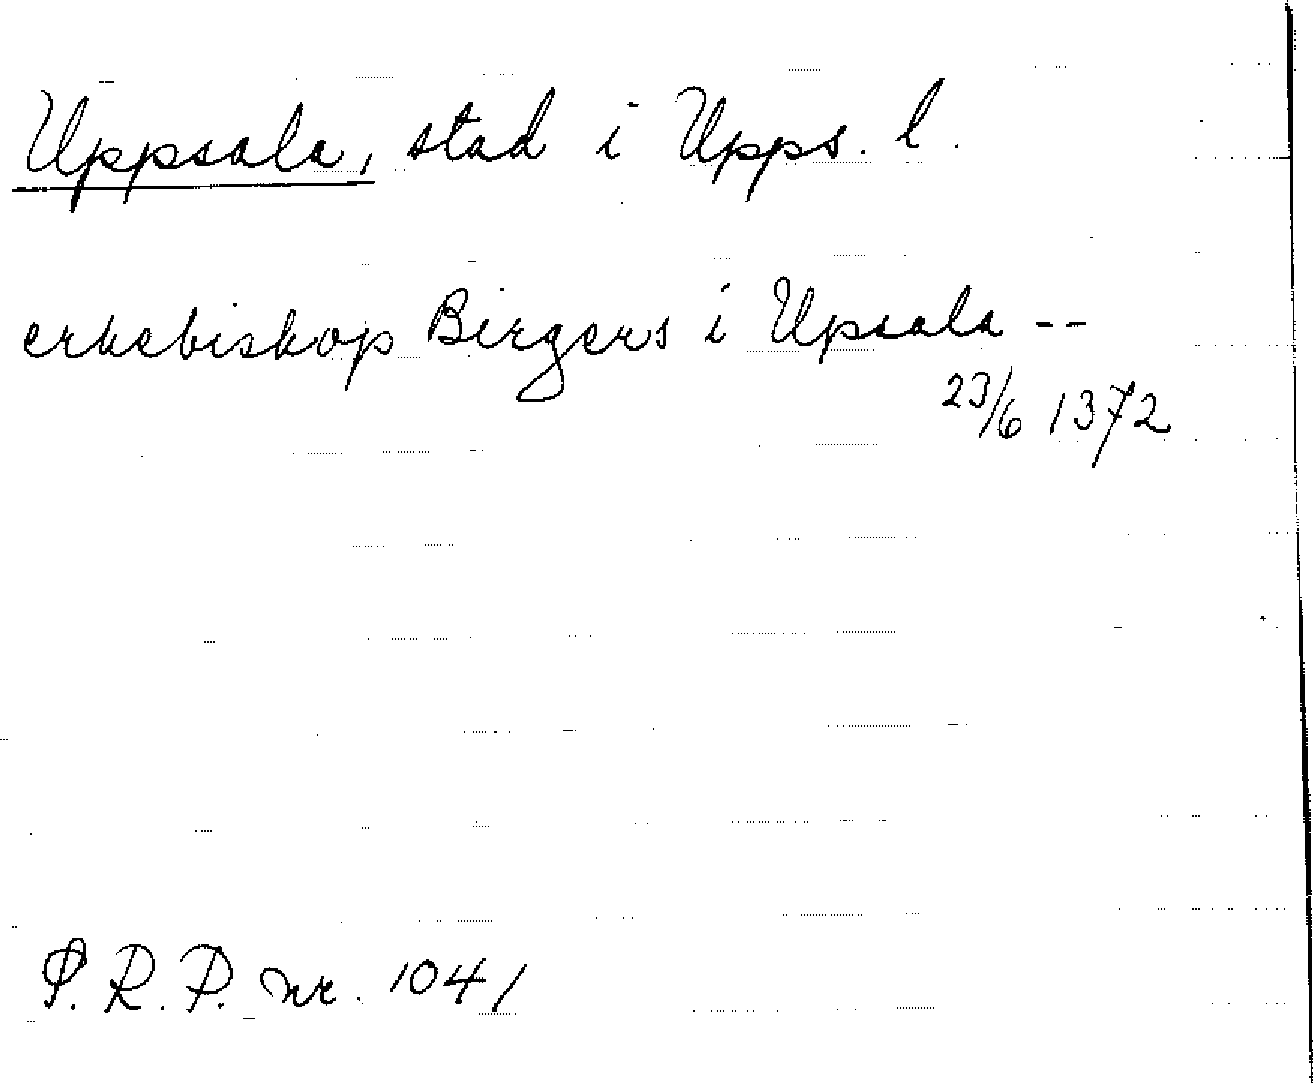 Uppsala, stad i Upps. l.
erkebiskop Birgers i Upsala --
23/6 1372
P. R. P. nr. 1041